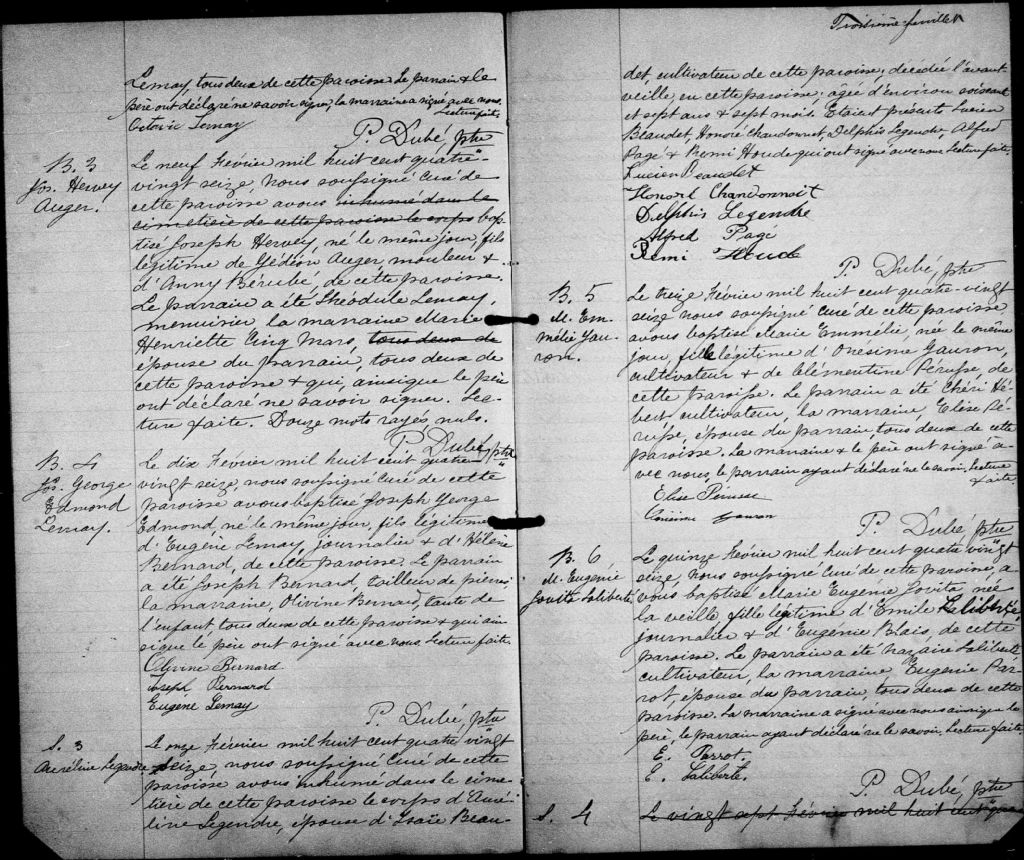 Lemay, tous deux de cette paroisse. Le parrain & le
père ont déclaré ne savoir signer, la marraine a signé avec nous.
Lecture faite.
Octavie Lemay
P. Dubé, ptre
B. 3
Jos. Hervey
Auger.
Le neuf Février mil huit cent quatre-
vingt seize, nous soussigné curé de
cette paroisse avons inhumé dans le
cimetière de cette paroisse le corps bap-
tisé Joseph Hervey, né le même jour, fils
légitime de Gédéon Auger mouleur &
d'Anny Bérubé, de cette paroisse.
Le parrain a été Théodule Lemay,
menuisier la marraine Marie
Henriette Cinq Mars, tous deux de
épouse du parrain, tous deux de
cette paroisse & qui, ainsi que le père
ont déclaré ne savoir signer. Lec-
ture faite. Douze mots rayés nuls.
P. Dubé, ptre
B. 4
Jos. George
Edmond
Lemay.
Le dix Février mil huit cent quatre-
vingt seize, nous soussigné curé de cette
paroisse avons baptisé Joseph George
Edmond né le même jour, fils légitime
d'Eugène Lemay, journalier & d'Hélène
Bernard, de cette paroisse. Le parrain
a été Joseph Bernard tailleur de pierres
la marraine, Olivine Bernard, tante de
l'enfant tous deux de cette paroisse & qui ain-
si que le père ont signé avec nous. Lecture faite.
Olivine Bernard
Joseph Bernard
Eugène Lemay
P. Dubé, ptre
S. 3
Aureline Legendre
Le onze Février mil huit cent quatre vingt
seize, nous soussigné curé de cette
paroisse avons inhumé dans le cime-
tière de cette paroisse le corps d'Auré-
line Legendre, épouse d'Isaïe Beau-
Troisième feuillet
det, cultivateur de cette paroisse, décédée l'avant
veille, en cette paroisse, âgée d'environ soixante
et sept ans & sept mois. Etaient présents Lucien
Beaudet, Honoré Chandonnet, Delphis Legendre, Alfred
Pagé & Rémi Houde qui ont signé avec nous. Lecture faite.
Lucien Beaudet
Honoré Chandonnait
Delphis Legendre
Alfred Pagé
Rémi Houde
P. Dubé, ptre
B. 5
M. Em-
mélie Gau-
ron.
Le treize Février mil huit cent quatre-vingt
seize nous soussigné curé de cette paroisse
avons baptisé Marie Emmélie, née le même
jour, fille légitime d'Onésime Gauron,
cultivateur & de Clémentine Pérusse, de
cette paroisse. Le parrain a été Chéri Hé-
bert cultivateur, la marraine, Elise Pé-
russe, épouse du parrain tous deux de cette
paroisse. La marraine & le père ont signé a-
vec nous, le parrain ayant déclaré ne le savoir, Lecture
faite.
Elise Perusse
Onésime Gauron
P. Dubé, ptre
B. 6
M. Eugénie
Jovite Laliberté
Le quinze Février mil huit cent quatre vingt
seize, nous soussigné curé de cette paroisse, a-
vons baptisé Marie Eugenie Jovite, née
la veille, fille légitime d'Emile Laliberté,
journalier & d'Eugénie Blais, de cette
paroisse. Le parrain a été Nazaire Laliberté
cultivateur, la marraine Eugenie Par-
rot, épouse du parrain, tous deux de cette
paroisse. La marraine a signé avec nous ainsi que le
père, le parrain ayant déclaré ne le savoir, Lecture faite
E. Parrot.
E. Laliberté.
P. Dubé, ptre
S. 4
Le vingt sept Février mil huit cent qua